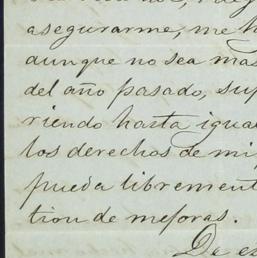 asegurarme, me h
aunque no sea mas
del año pasado, sup
riendo hasta igua
los derechos de mi
pueda librement
tion de mejoras.
De e